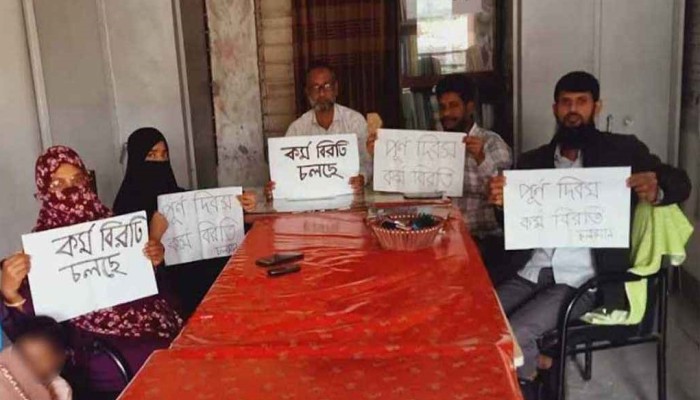 কর্ম বিরতি
চলছে
পূর্ণ দিবস
কর্ম বিরতি
চলমান
কর্ম বিরতি
চলছে
পূর্ণ দিবস
কর্ম বিরতি
পূর্ণ দিবস
কর্ম বিরতি
চলমান